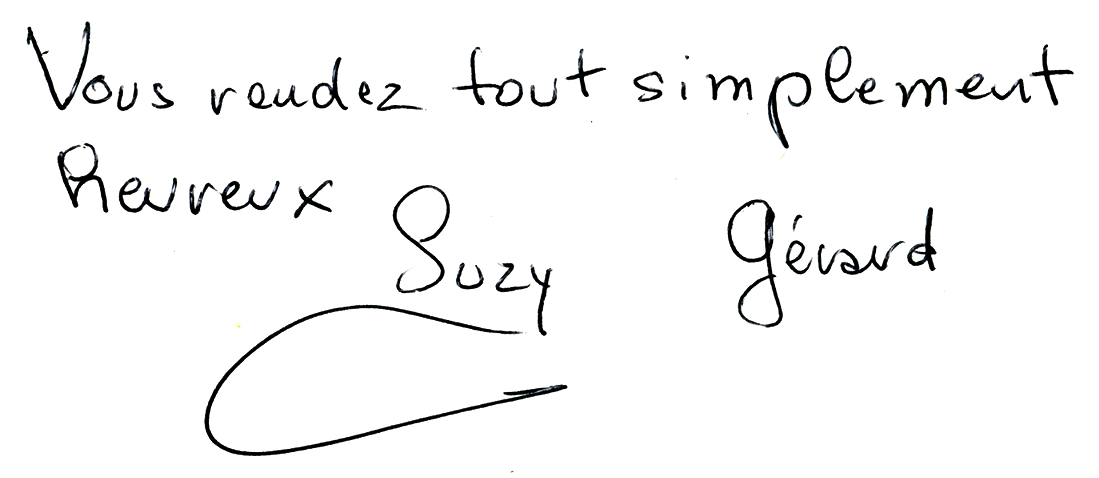 Vous rendez tout simplement
heureux
Suzy Gérard